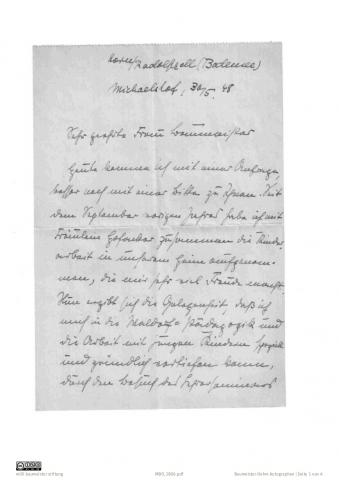 Horn/Radolfzell (Bodensee)
Michaelshof, 30/5. 48
Sehr geehrte Frau Baumeister
Heute komme ich mit einer Anfrage,
besser noch mit einer Bitte zu Ihnen. Seit
dem September vorigen Jahres habe ich mit
Fräulein zusammen die Kinder
arbeit in unserem Heim aufgenom-
men, die mir sehr viel Freude macht.
Nun ergibt sich die Gelegenheit, daß ich
mich in die Waldorf-Pädagogik und
die Arbeit mit jungen Kindern speziell
und gründlich vertiefen kann,
durch den Besuch des Lehrerseminars
willi baumeister stiftung
Baumeister-Rehm Autographen | Seite 1 von 4